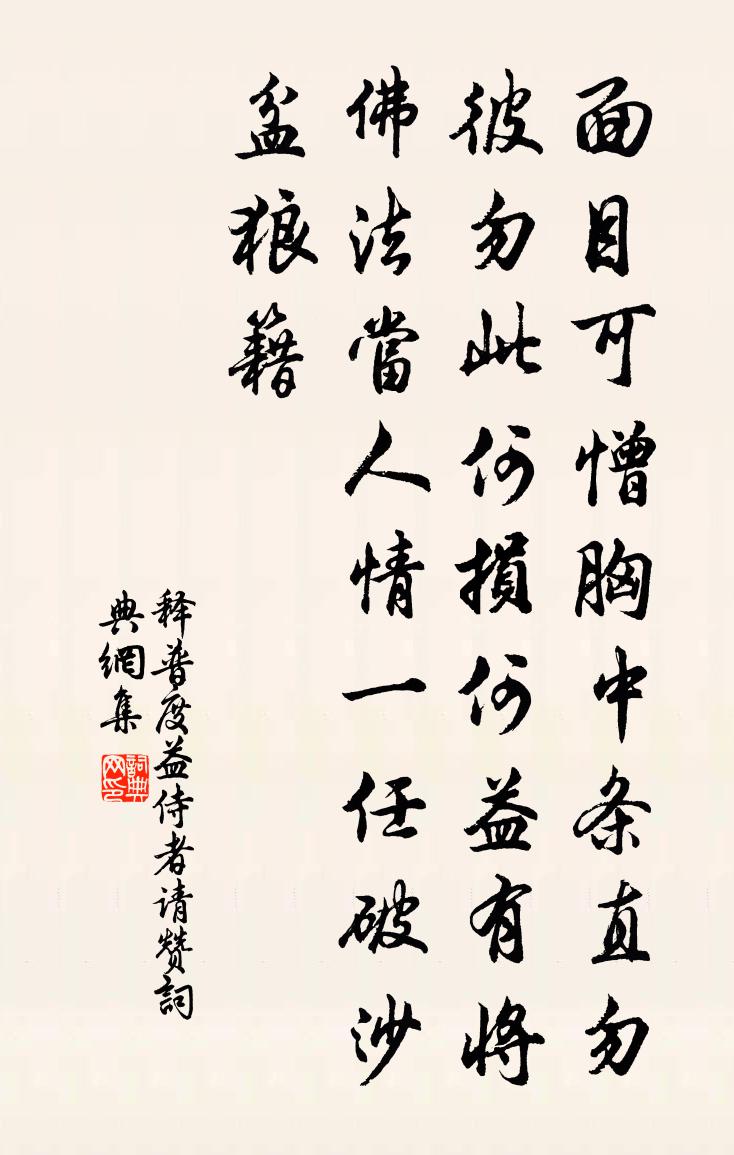 面目可憎胸中条直勿
彼勿此何損何益有將
佛法當人情一任破沙
盆狼籍
释普度益侍者请赞詞
典網集
詞典
网印